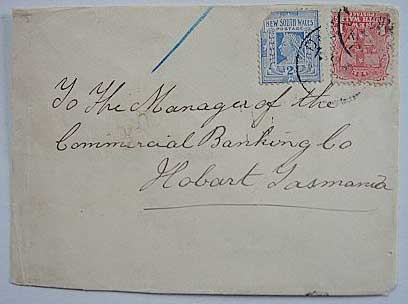 NEW SOUTH WALES
POSTAGE
To The Manager of the
Commercial Banking Co
Hobart Tasmania